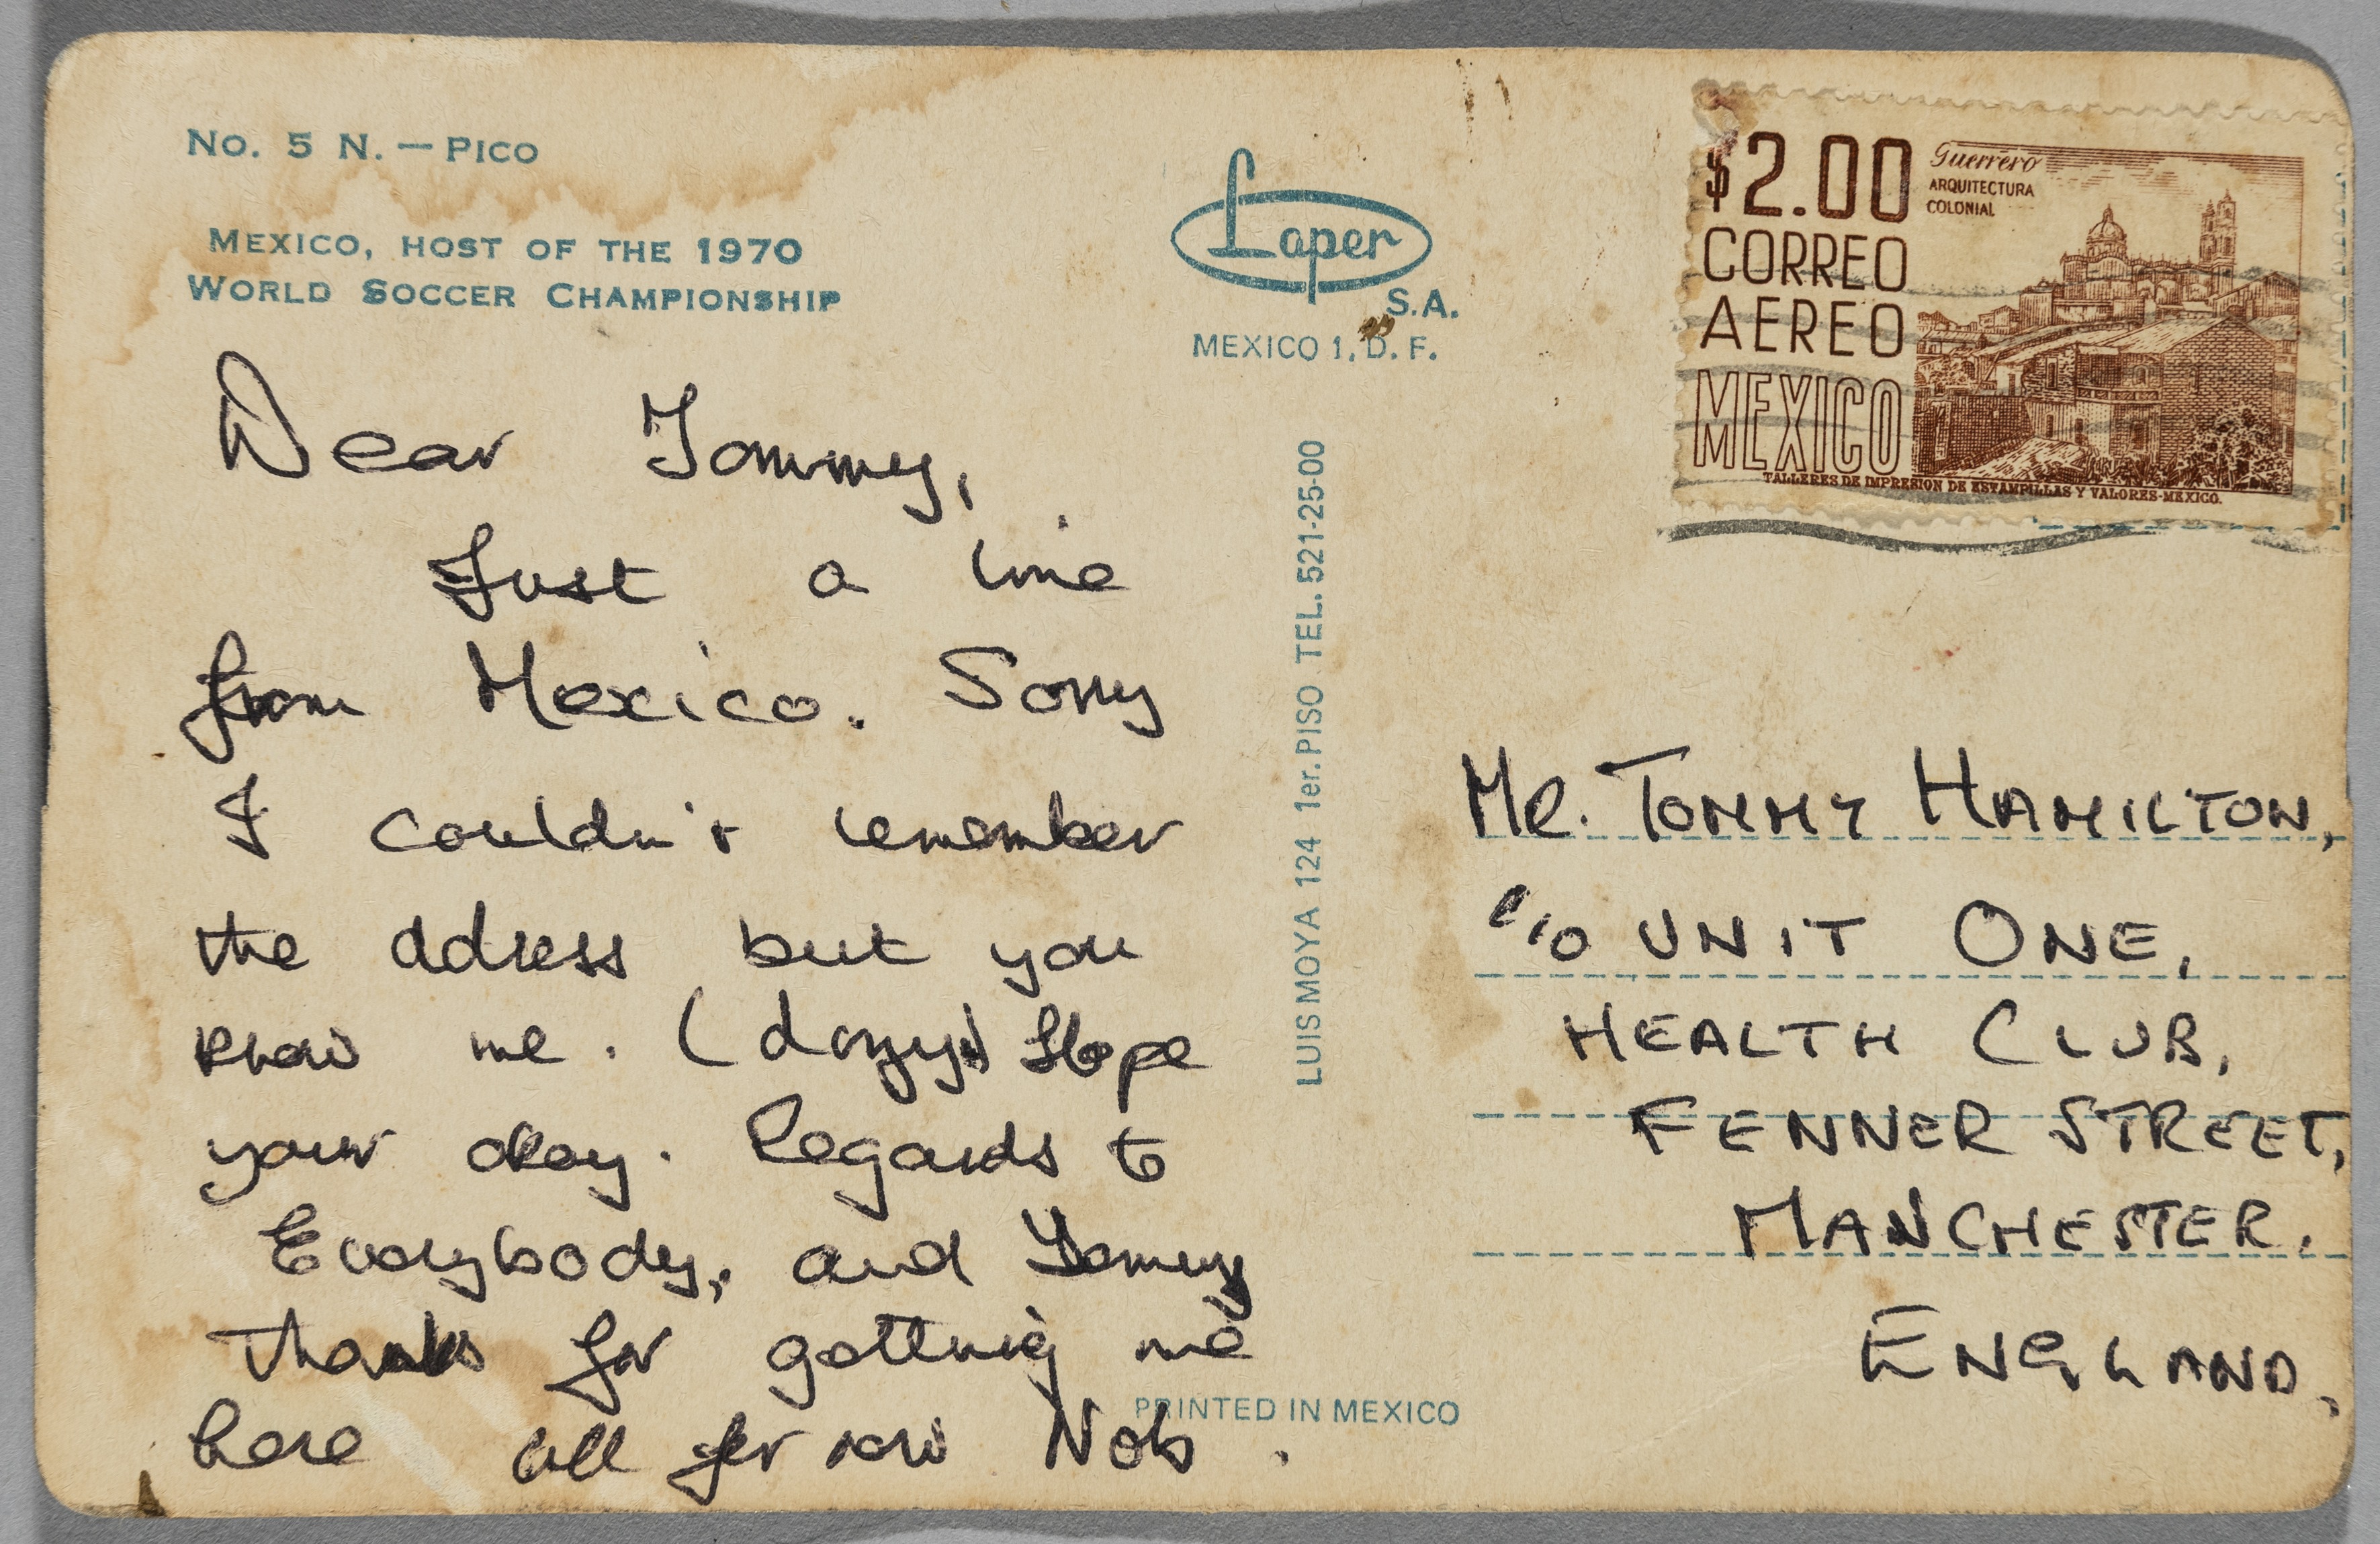 No. 5 N. — PICO
MEXICO, HOST OF THE 1970
WORLD SOCCER CHAMPIONSHIP
Dear Tommy,
Just a line
from Mexico. Sorry
I couldn't remember
the address but you
know me. (dozy) Hope
your okay. Regards to
Everybody, and Tommy
thanks for getting me
here all for now Nob.
Laper
S.A.
MEXICO 1, D. F.
LUIS MOYA 124 1er. PISO TEL. 521-25-00
PRINTED IN MEXICO
$2.00
CORREO
AEREO
MEXICO
Guerrero
ARQUITECTURA
COLONIAL
TALLERES DE IMPRESION DE ESTAMPILLAS Y VALORES-MEXICO.
MR. TOMMY HAMILTON,
c/o UNIT ONE,
HEALTH CLUB,
FENNER STREET,
MANCHESTER.
ENGLAND.